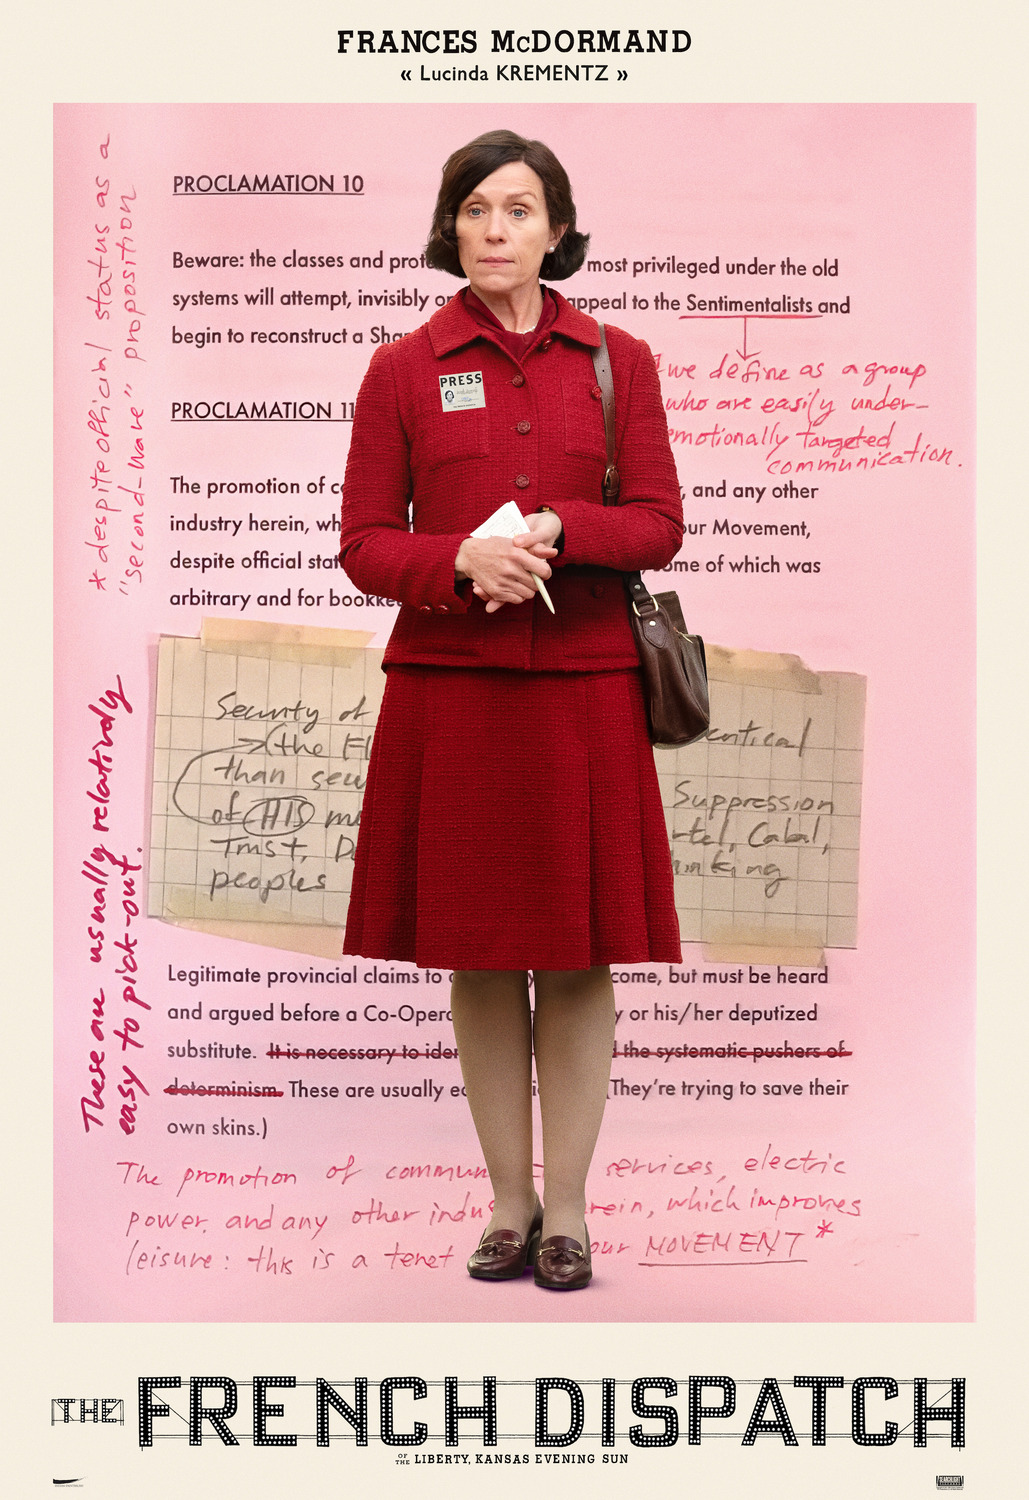 FRANCES McDORMAND
« Lucinda KREMENTZ »
* despite official status as a
"second-wave" proposition
PROCLAMATION 10
Beware: the classes and most privileged under the old
systems will attempt, invisibly appeal to the Sentimentalists and
begin to reconstruct a
we define as a group
who are easily under-
targeted
communication.
PROCLAMATION 11
The promotion of , and any other
industry herein, Movement,
despite official of which was
arbitrary and for
PRESS
Security of
(the
than
of HIS
Trust,
peoples
Suppression
Cabal,
These are usually relatively
easy to pick-out.
Legitimate provincial claims to come, but must be heard
and argued before a or his/her deputized
substitute. It is necessary to the systematic pushers of
determinism. These are usually They're trying to save their
own skins.)
The promotion of services, electric
power, and any other which improves
leisure: this is a tenet our MOVEMENT*
THE FRENCH DISPATCH
OF THE LIBERTY, KANSAS EVENING SUN